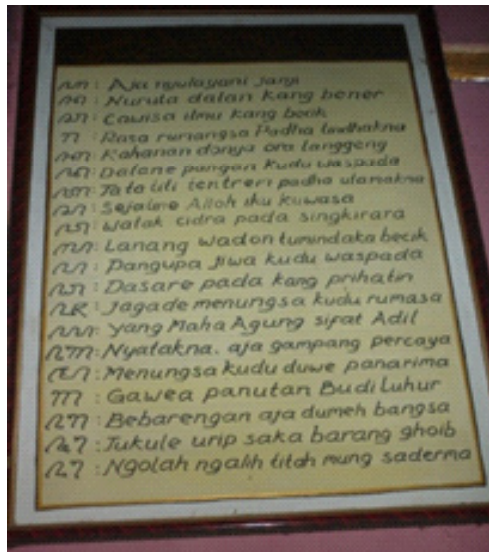 ꦲ : Aja nyulayani janji
ꦤ : Nuruta dalan kang bener
ꦕ : Cawisa ilmu kang becik
ꦫ : Rasa rumangsa Padha tindhakna
ꦏ : Kahanan donya ora langgeng
ꦢ : Dalane pangan kudu waspada
ꦠ : Tata titi tentrem padha utamakna
ꦱ : Sejatine Alloh iku kuwasa
ꦮ : Watak cidra pada singkirara
ꦭ : Lanang wadon tumindaka becik
ꦥ : Pangupa Jiwa kudu waspada
ꦝ : Dasare pada kang prihatin
ꦗ : Jagade menungsa kudu rumasa
ꦪ : Yang Maha Agung sifat Adil
ꦚ : Nyatakna. aja gampang percaya
ꦩ : Menungsa kudu duwe panarima
ꦒ : Gawea panutan Budi Luhur
ꦧ : Bebarengan aja dumeh bangsa
ꦛ : Tukule urip saka barang ghoib
ꦔ : Ngolah ngalih titah mung saderma